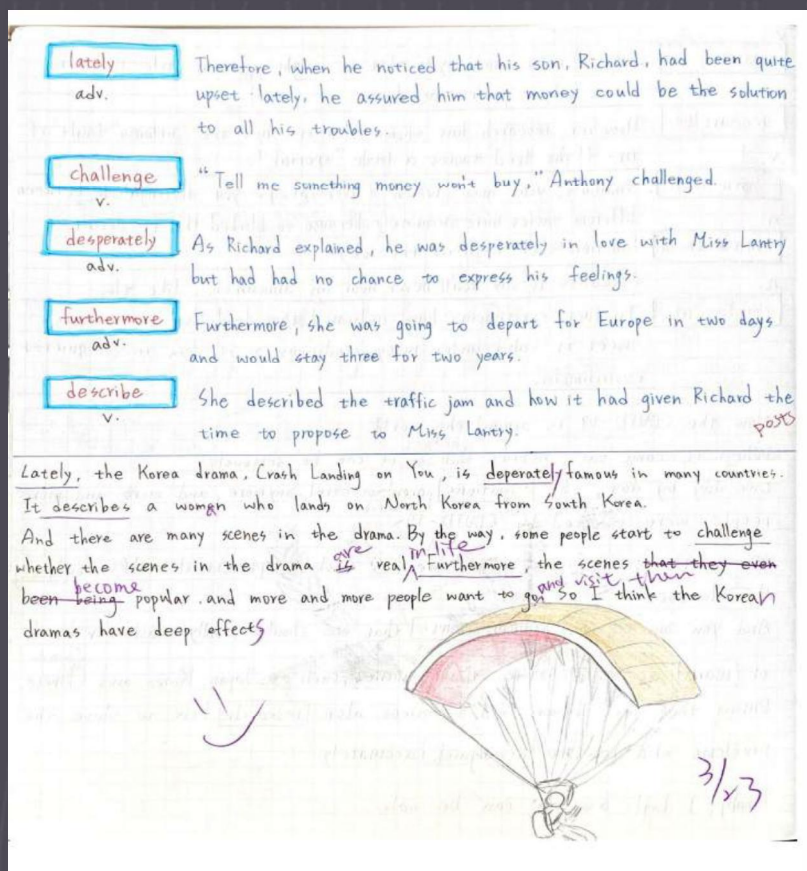 lately
adv.
Therefore, when he noticed that his son, Richard, had been quite
upset lately, he assured him that money could be the solution
to all his troubles.
challenge
v.
"Tell me sunething money won't buy," Anthony challenged.
desperately
adv.
As Richard explained, he was desperately in love with Miss Lantry
but had had no chance to express his feelings.
furthermore
adv.
Furthermore, she was going to depart for Europe in two days
and would stay three for two years.
describe
v.
She described the traffic jam and how it had given Richard the
time to propose to Miss Lantry.
Lately, the Korea drama, Crash Landing on You, is deperately famous in many countries.
It describes a woman who lands on North Korea from South Korea.
And there are many scenes in the drama. By the way, some people start to challenge
are in life
whether the scenes in the drama is real. Furthermore, the scenes that they even
become and visit them
been being popular, and more and more people want to go. So I think the Korean
dramas have deep effects
3/23